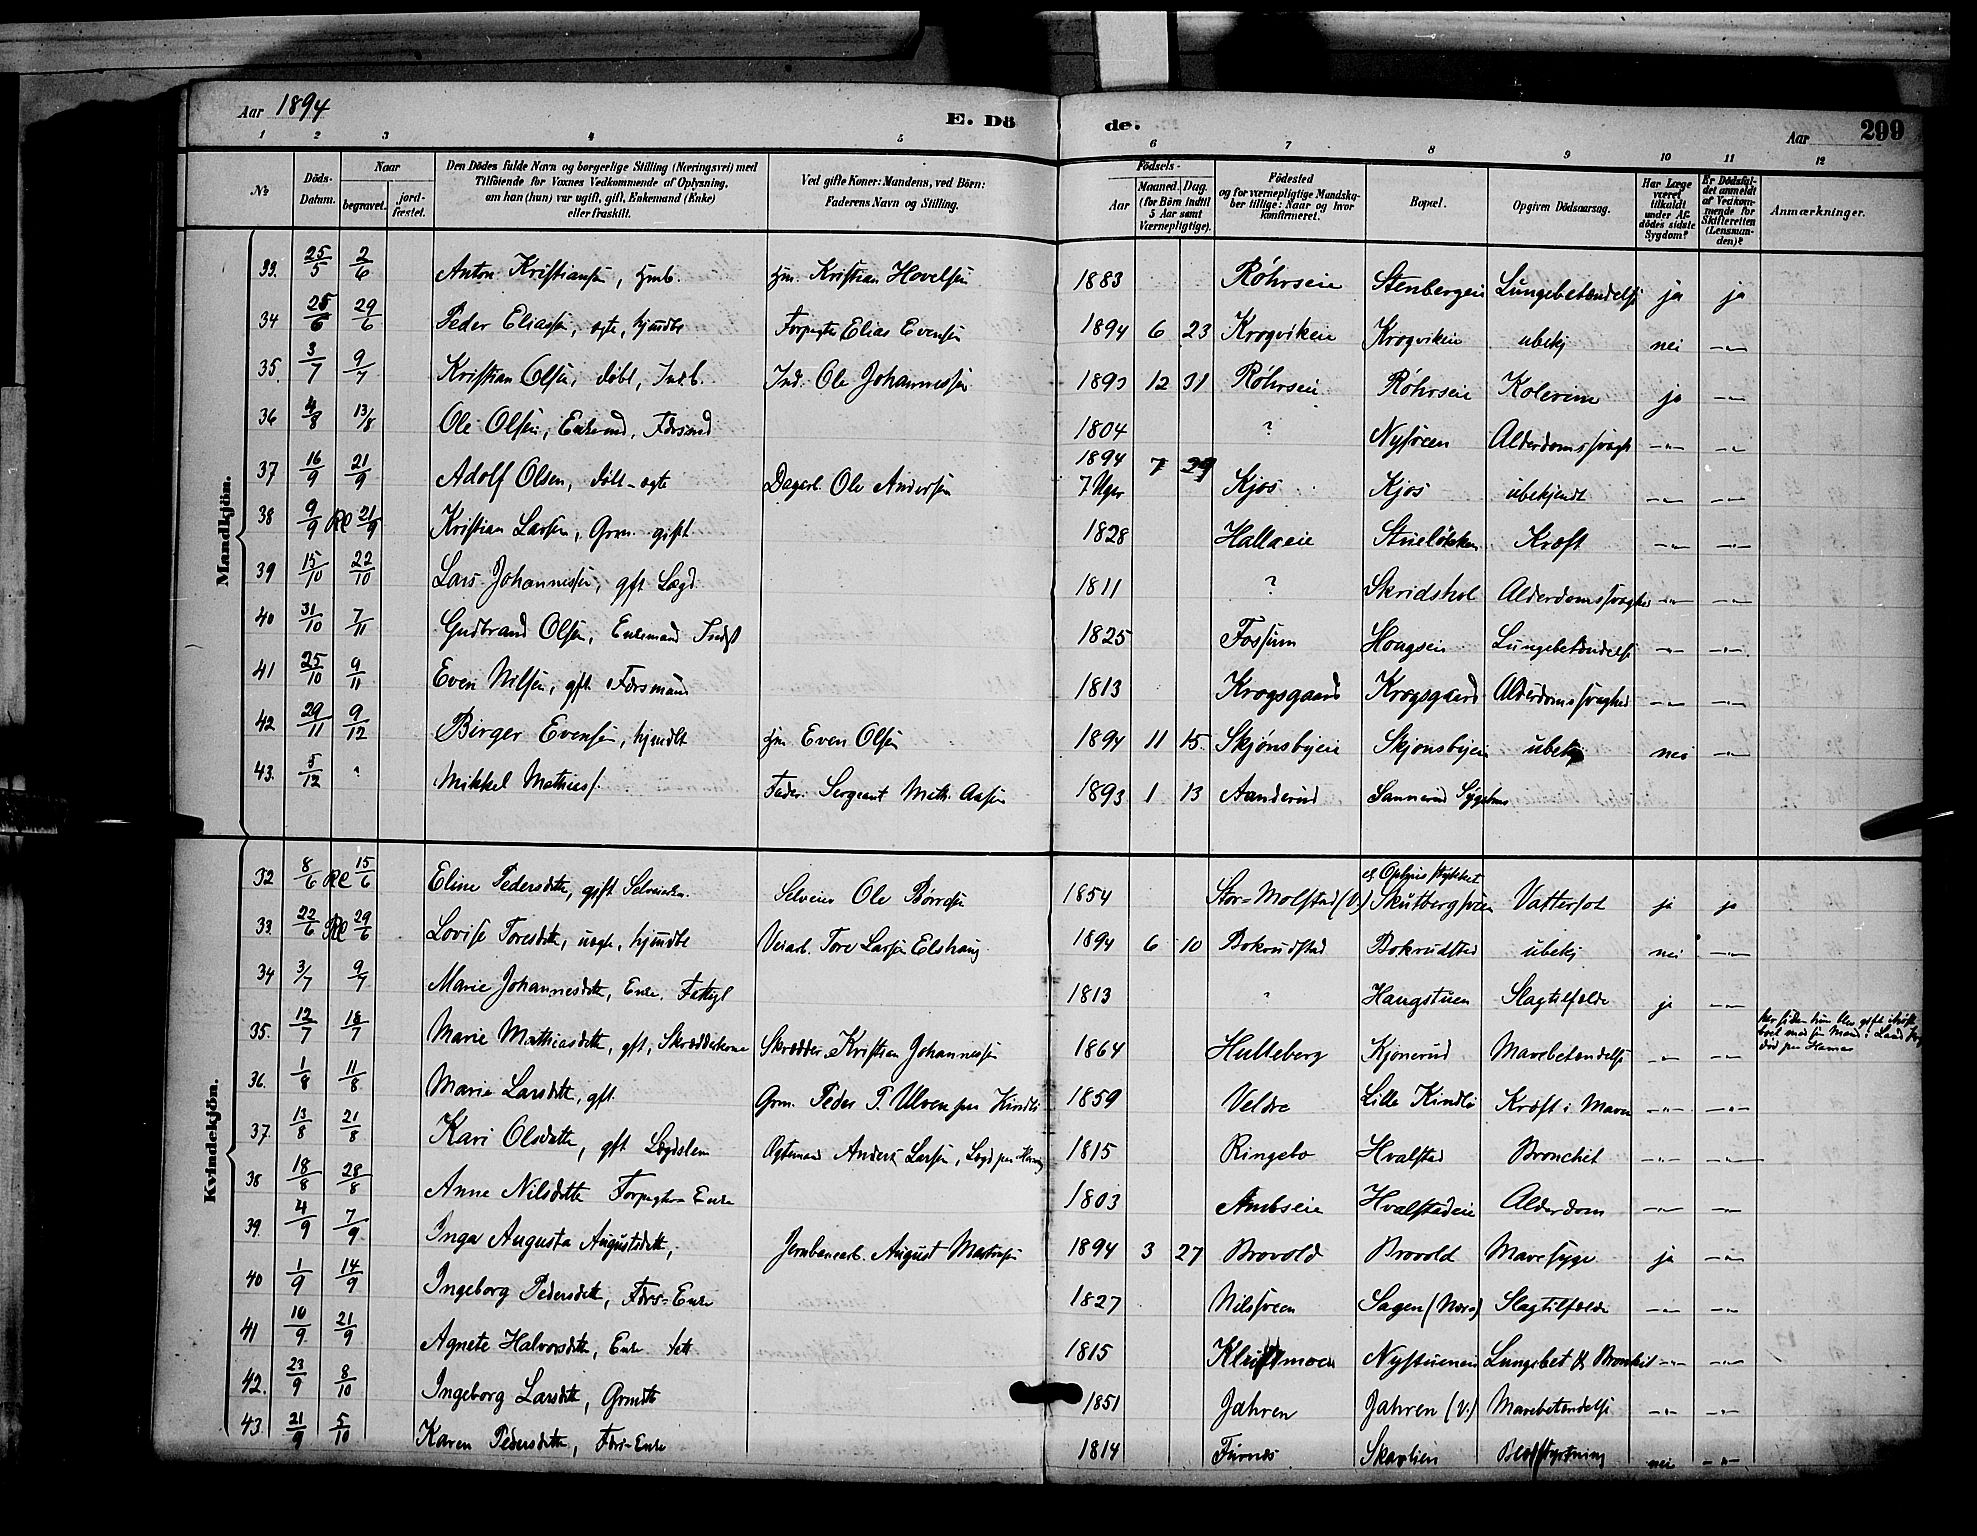 Aar 1894
E. Dö de.
Aar 299
1 2 3 4 5 6 7 8 9 10 11 12
No Döds-Datum. Naar begravet. jordfæstet. Den Dödes fulde Navn og borgerlige Stilling (Næringsvei) med Tilföiende for Voxnes Vedkommende af Oplysning, om han (hun) var ugift, gift, Enkemand (Enke) eller fraskilt. Ved gifte Koner: Mandens, ved Börn: Faderens Navn og Stilling. Födsels- Aar Maaned. Dag. (for Börn indtil 5 Aar samt Værnepligtige). Födested og for værnepligtige Mandskaber tillige: Naar og hvor konfirmeret. Bopæl. Opgiven Dödsaarsag. Har Læge været tilkaldt under Afdödes sidste Sygdom? Er Dödsfaldet anmeldt af Vedkommende for Skifteretten (Lensmanden)? Anmærkninger.
Mandkjön.
33. 25/5 2/6 Anton Kristiansen, Hmb. Hm. Kristian Hovelsen 1883 Röhrseie Stenbergeie Lungebetændelse ja ja
34 25/6 29/6 Peder Eliassen, ægte, hjmdbt Forpagter Elias Evensen 1894 6 23 Krogviken Krogviken ubekj nei -"-
35. 3/7 9/7 Kristian Olsen, döbt, Indb. Ind. Ole Johannessen 1893 12 31 Röhrseie Röhrseie Kolerine ja -"-
36 4/8 13/8 Ole Olsen, Enkemd, Forsmd 1804 ? Nysveen Alderdomssvagh -"- -"-
37 16/9 21/9 Adolf Olsen, döbt - ægte Dagarb. Ole Andersen 1894 7 29 7 Uger Kjos Kjos ubekjendt -"- -"-
38 9/9 Rl 21/9 Kristian Larsen, Grm. gift 1828 Hallaeie Stuelökken Kræft -"- -"-
39 15/10 22/10 Lars Johannessen, gft Lægd 1811 ? Skridshol Alderdomssvaghed -"- -"-
40 31/10 7/11 Gudbrand Olsen, Enkemand Indst 1825 Fossum Hougseie Lungebetændelse -"- -"-
41 25/10 9/11 Even Nilsen, gft Forsmand 1813 Krogsgaard Krogsgaard Alderdomssvaghed -"- -"-
42 29/11 9/12 Birger Evensen, hjmdbt Hm Even Olsen 1894 11 15. Skjönsbyeie Skjönsbyeie ubekj nei -"-
43. 5/12 " Mikkel Mathiess. Fader. Sergeant Math. Aasen 1893 1 13 Aanderud Sannerud Sygehus
Kvindekjön.
32 8/6 Rl 15/6 Eline Pedersdtr, gift Selveierkn. Selveier Ole Börresen 1854 Stor-Molstad (V.) Skutbergsveen Vattersot ja ja
33. 22/6 Rl 29/6 Lovise Toresdtr, uægte, hjmdbt Tore Larsen Elshaug 1894 6 10 Bokrudstad Bokrudstad ubekj nei -"-
34 3/7 9/7 Marie Johannesdtr, Enke. Fattigl 1813 " Haugstuen Slagtilfælde ja -"-
35. 12/7 18/7 Marie Mathiasdtr, gft, Skrædderkone Skrædder Kristian Johannessen 1864 Hulleberg Kjonerud Mavebetændelse -"- -"-
36. 1/8 11/8 Marie Larsdtr, gft. Grm. Peder P. Ulven paa Kindli 1859 Veldre Lille Kindli Kræft i Maven -"- -"-
37. 13/8 21/8 Kari Olsdatter, gft Lægdslem Ægtemand Anders Larsen, Lægd paa 1815 Ringebo Hvalstad Bronchit -"- -"-
38 18/8 28/8 Anne Nilsdtr Forpagter Enke 1803 Ambseie Hvalstadeie Alderdom -"- -"-
39. 4/9 7/9 Inga Augusta Augustsdtr, Jernbanearb. August 1894 3 27 Brovold Brovold Mavesyge ja -"-
40 1/9 14/9 Ingeborg Pedersdtr, Fors-Enke 1827 Nilsveen Sagen (Næs) Slagtilfælde -"- -"-
41 10/9 21/9 Agnete Halvorsdtr, Enke fatt 1815 Nystueneie Lungebet & Bronkit -"- -"-
42. 23/9 8/10 Ingeborg Larsdtr, 1851 Jahren Jahren (V.) Mavebetændelse -"- -"-
43. 21/9 5/10 Karen Pedersdtr, Fors-Enke 1814 Furnæs Skavlien Blodstyrtning nei -"-